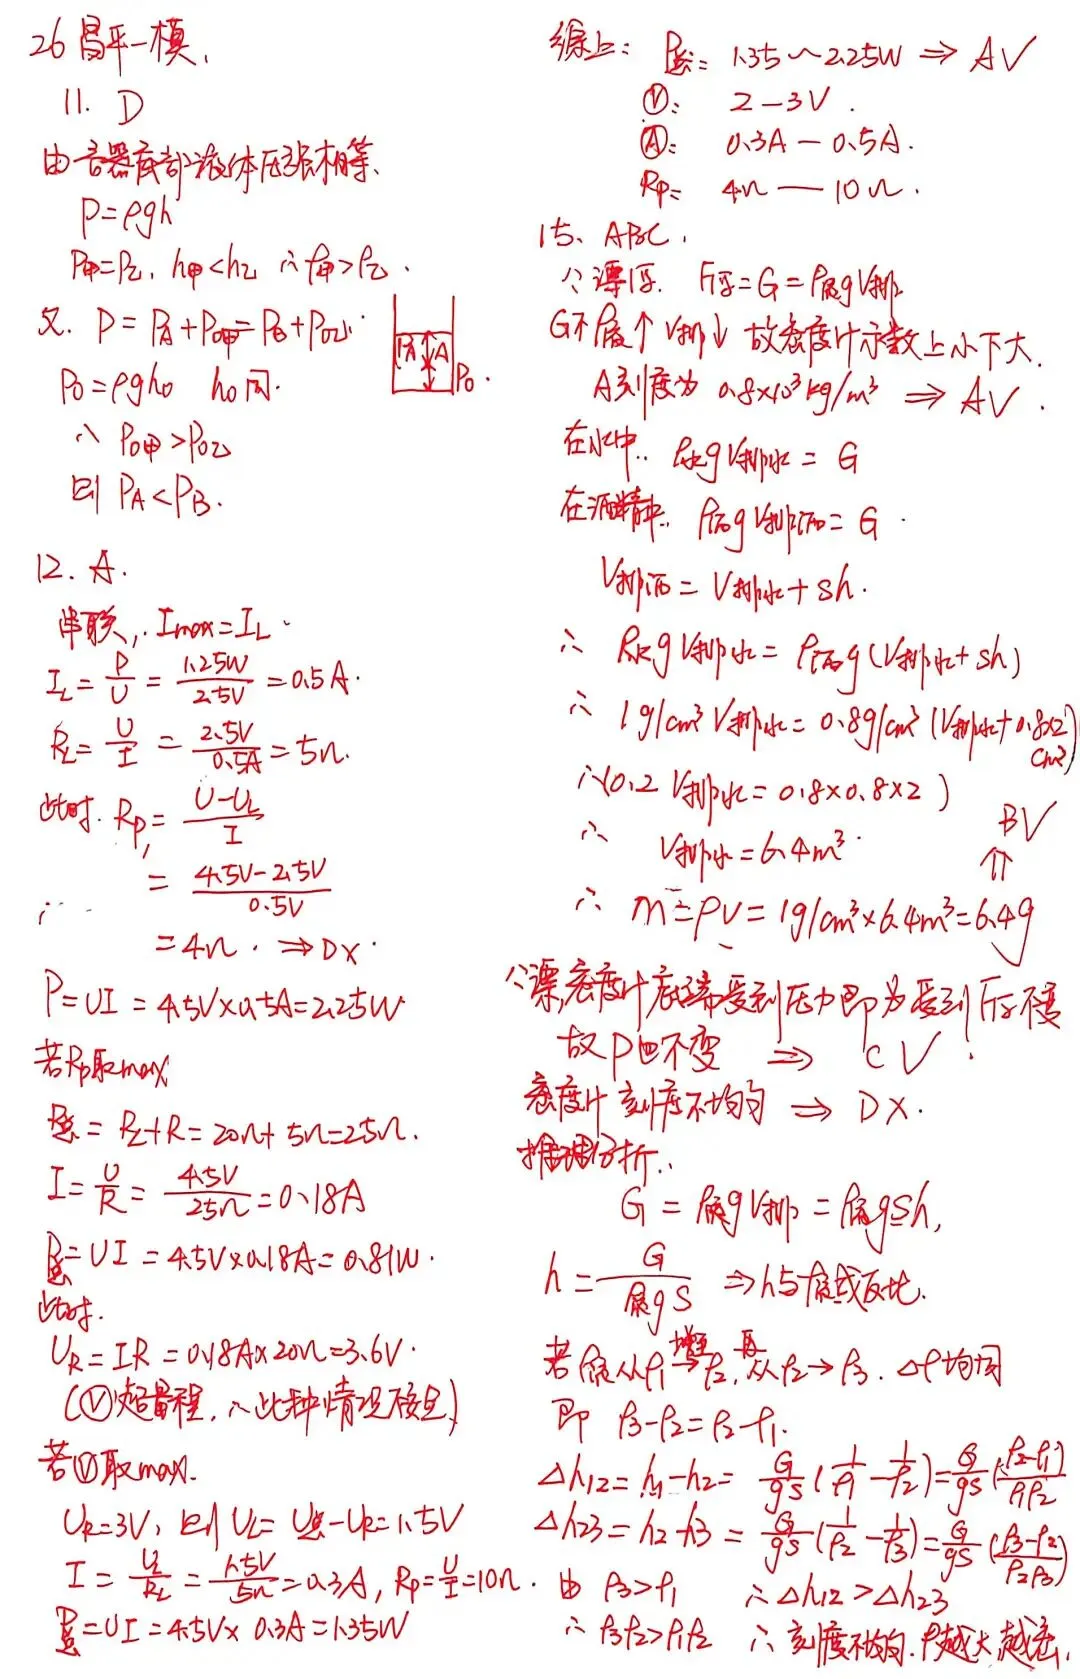 26昌平一模.
11. D
由容器底部液体压强相等.
P=ρgh
P甲=P乙. h甲<h乙 ∴ρ甲>ρ乙.
又. P=PA+P0甲=PB+P0乙.
P0=ρgh0 h0同.
PA A P0.
∴ P0甲>P0乙
则 PA<PB.
12. A.
串联, Imax=IL.
IL=P/U=1.25W/2.5V=0.5A.
RL=U/I=2.5V/0.5A=5Ω.
此时. RP=(U-UL)/I
=(4.5V-2.5V)/0.5V
=4Ω. ⇒D×.
P=UI=4.5V×0.5A=2.25W
若RP取max
R总=RL+R=20Ω+5Ω=25Ω.
I=U/R=4.5V/25Ω=0.18A
P总=UI=4.5V×0.18A=0.81W.
此时.
UR=IR=0.18A×20Ω=3.6V.
(Ⓥ超量程,∴此种情况舍)
若Ⓥ取max.
UR=3V, 则UL=U总-UR=1.5V
I=UL/RL=1.5V/5Ω=0.3A, RP=U/I=10Ω.
P总=UI=4.5V×0.3A=1.35W
综上: P总: 1.35~2.25W ⇒ A√
Ⓥ: 2-3V.
Ⓐ: 0.3A-0.5A.
RP: 4Ω—10Ω.
15. ABC.
∵漂浮. F浮=G=ρ液gV排
G不变 ρ液↑ V排↓ 故密度计示数上小下大.
A刻度为 0.8×10³kg/m³ ⇒ A√.
在水中. ρ水gV排水=G
在酒精中. ρ酒gV排酒=G.
V排酒=V排水+Sh.
∴ ρ水gV排水=ρ酒g(V排水+Sh)
∴ 1g/cm³V排水=0.8g/cm³(V排水+0.8×2cm³)
∴(0.2V排水=0.8×0.8×2)
∴ V排水=6.4m³ B√
∴ m=ρV=1g/cm³×6.4m³=6.4g
∵漂,密度计底端受到压力即为受到F浮不变
故P也不变 ⇒ C√.
密度计刻度不均匀 ⇒ D×.
推理分析..
G=ρ液gV排=ρ液gSh,
h=G/ρ液gS ⇒h与ρ液成反比.
若ρ液从ρ1增至ρ2,再从ρ2→ρ3. Δρ均同
即 ρ3-ρ2=ρ2-ρ1.
Δh12=h1-h2=G/gS(1/ρ1-1/ρ2)=G/gS(ρ2-ρ1/ρ1ρ2)
Δh23=h2-h3=G/gS(1/ρ2-1/ρ3)=G/gS(ρ3-ρ2/ρ2ρ3)
由 ρ3>ρ1 ∴Δh12>Δh23
∴ρ3ρ2>ρ1ρ2 ∴刻度不均匀.ρ越大,越密.